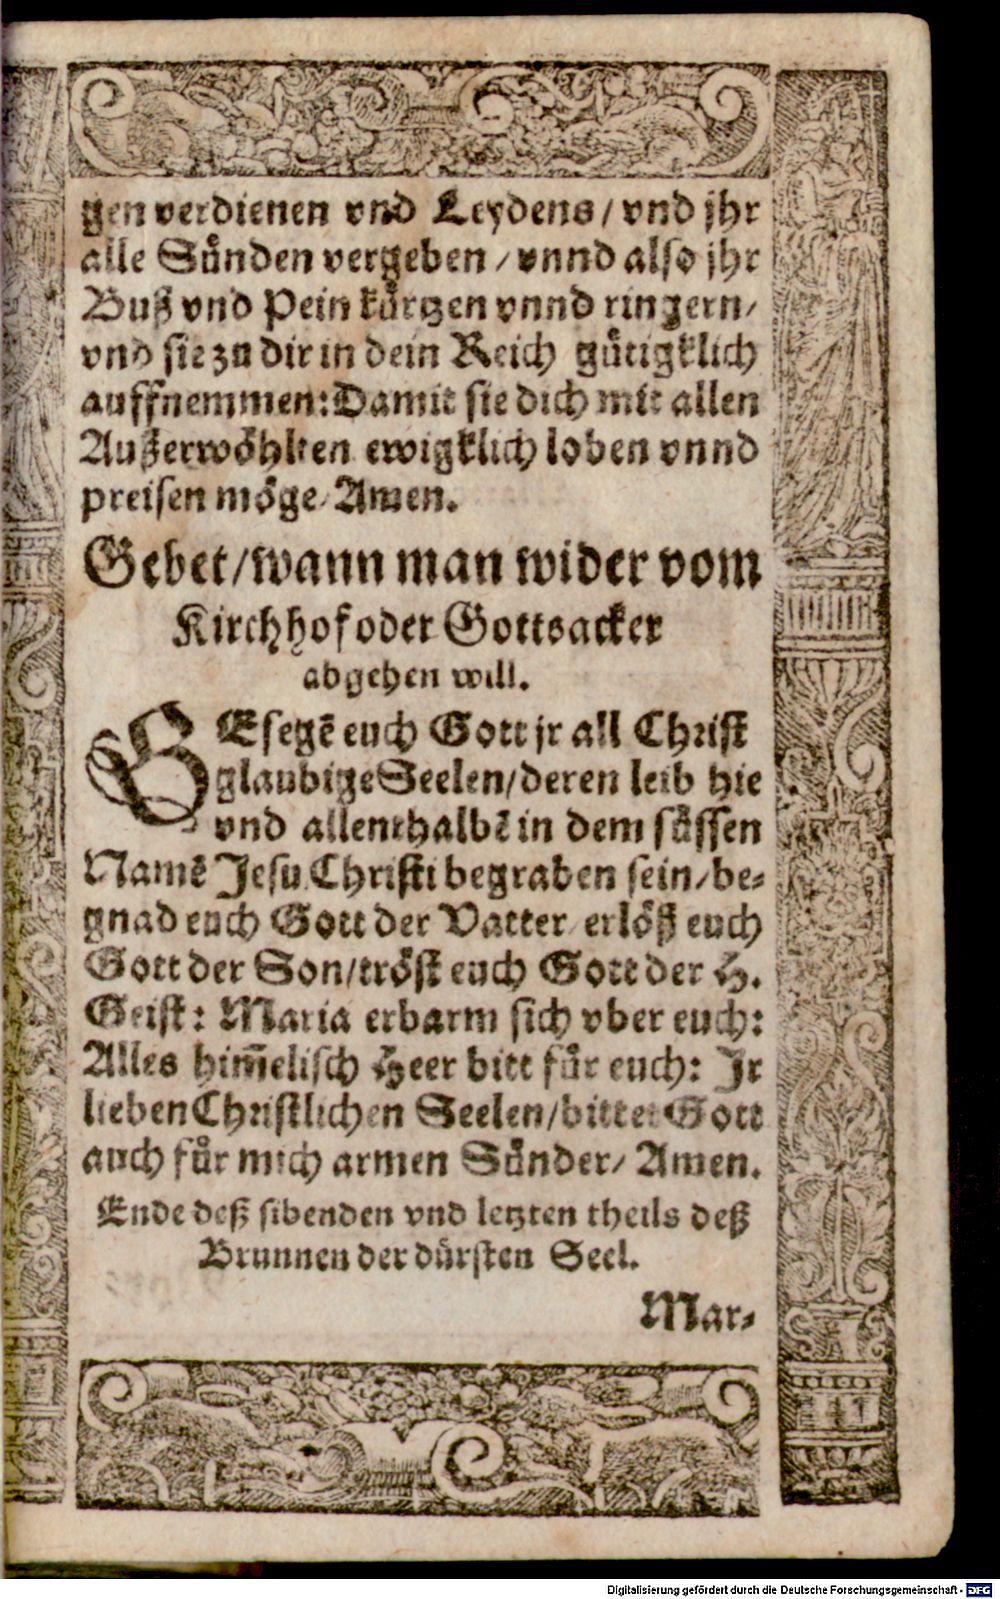 gen verdienen vnd Leydens / vnd jhr
alle Sünden vergeben / vnnd also jhr
Buß vnd Pein kürtzen vnnd ringern /
vnd sie zu dir in dein Reich gütigklich
auffnemmen: Damit sie dich mit allen
Außerwöhlten ewigklich loben vnnd
preisen möge / Amen.
Gebet / wann man wider vom
Kirchhof oder Gottsacker
abgehen will.
GEsegē euch Gott jr all Christ
glaubige Seelen / deren leib hie
vnd allenthalbē in dem süssen
Namē Jesu Christi begraben sein / be-
gnad euch Gott der Vatter / erlöß euch
Gott der Son / tröst euch Gott der H.
Geist: Maria erbarm sich vber euch:
Alles him̄elisch Heer bitt für euch: Jr
lieben Christlichen Seelen / bittet Gott
auch für mich armen Sünder / Amen.
Ende deß sibenden vnd letzten theils deß
Brunnen der dürsten Seel.
Mar-
Digitalisierung gefördert durch die Deutsche Forschungsgemeinschaft - DFG